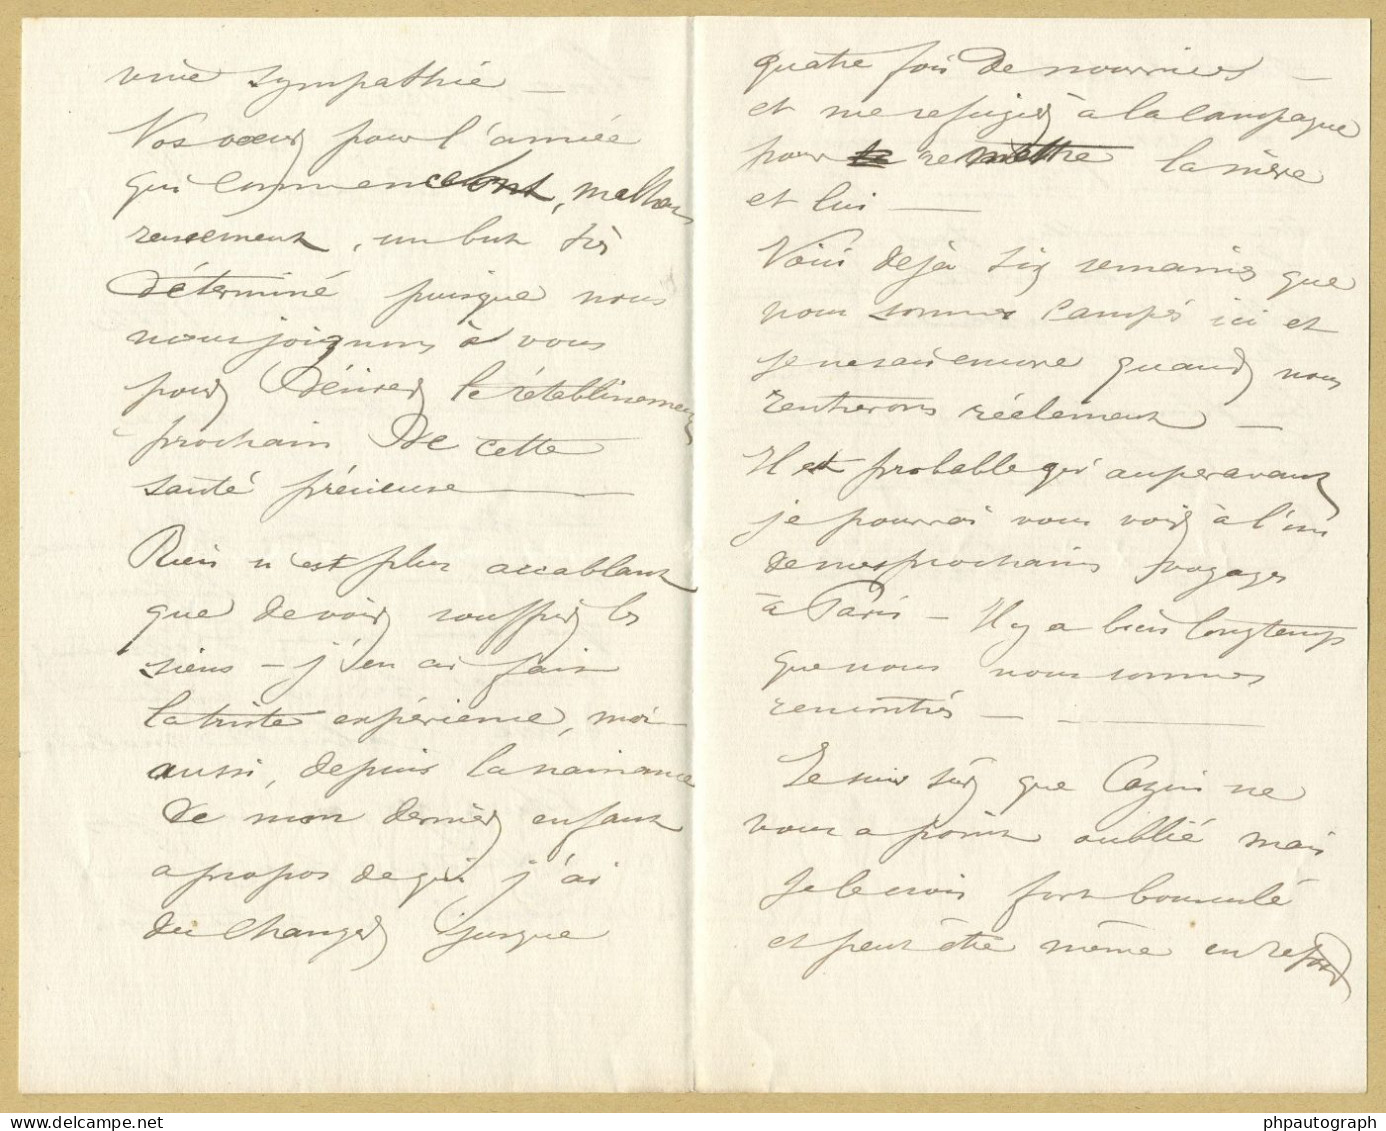 vive sympathie —
Vos vœux pour l'année
qui commence ont, malheu
reusement, un but très
déterminé puisque nous
nous joignons à vous
pour désirer le rétablissement
prochain de cette
santé précieuse —
Rien n'est plus accablant
que de voir souffrir les
siens — j'en ai fait
la triste expérience, moi
aussi, depuis la naissance
de mon dernier enfant
a propos de qui j'ai
du changer jusque
quatre fois de nourrices —
et me refugier à la campagne
pour remettre la mère
et lui —
Voici déjà six semaines que
nous sommes campés ici et
je ne sais encore quand nous
rentrerons réelement —
Il est probable qu'auparavant
je pourrai vous voir à l'un
de mes prochains voyages
à Paris — Il y a bien longtemps
que nous nous sommes
rencontrés — —
Je suis sûr que Cazin ne
vous a point oublié mais
je le crois fort bousculé
et peut être même en retard
delcampe.net
phpautograph